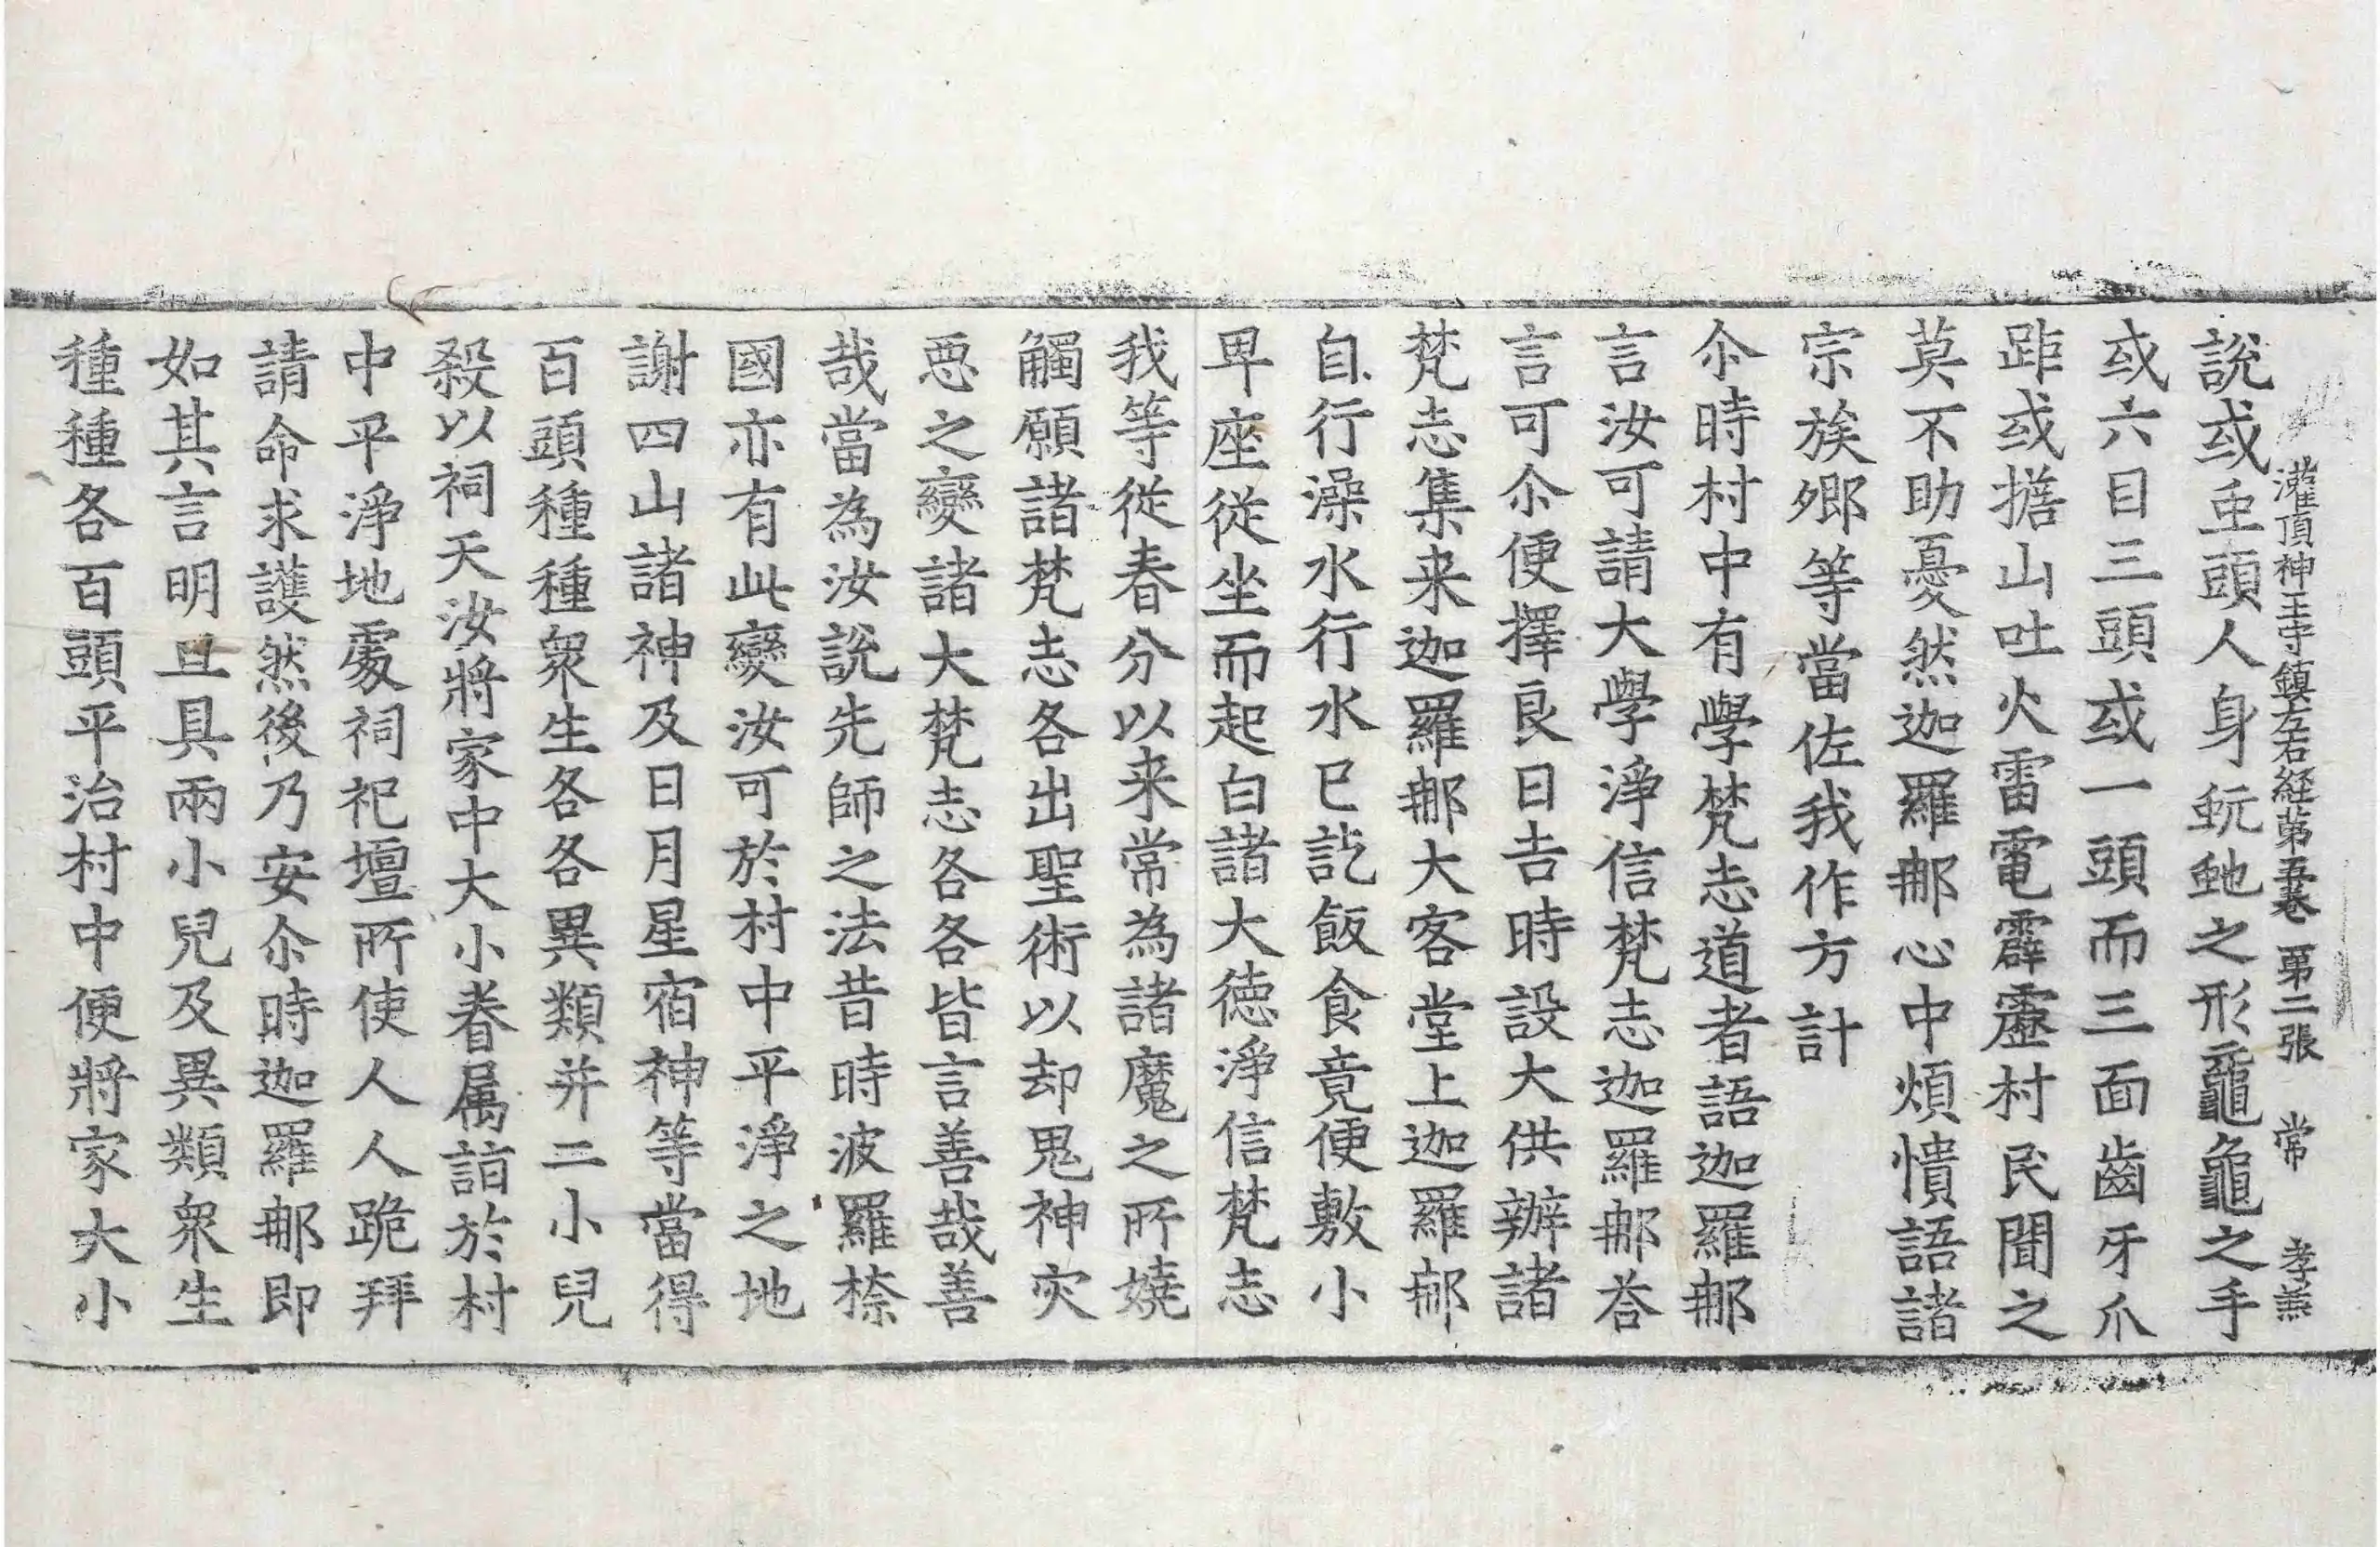 灌頂神王守鎮左右経苐五卷　苐二張　常　孝兼
說或䖝頭人身蚖虵之形黿龜之手
或六目三頭或一頭而三面齒牙爪
距或擔山吐火雷電霹靂村民聞之
莫不助憂然迦羅郍心中煩憒語諸
宗族鄉等當佐我作方計
尒時村中有學梵志道者語迦羅郍
言汝可請大學淨信梵志迦羅郍荅
言可尒便擇良日吉時設大供辦諸
梵志集来迦羅郍大客堂上迦羅郍
自行澡水行水已訖飯食竟便敷小
卑座從坐而起白諸大德淨信梵志
我等從春分以来常為諸魔之所嬈
觸願諸梵志各出聖術以却鬼神灾
惡之變諸大梵志各各皆言善哉善
哉當為汝說先師之法昔時波羅㮈
國亦有此變汝可於村中平淨之地
謝四山諸神及日月星宿神等當得
百頭種種衆生各各異類并二小兒
殺以祠天汝將家中大小眷属詣於村
中平淨地處祠祀壇所使人人跪拜
請命求護然後乃安尒時迦羅郍即
如其言明旦具兩小兒及異類衆生
種種各百頭平治村中便將家大小